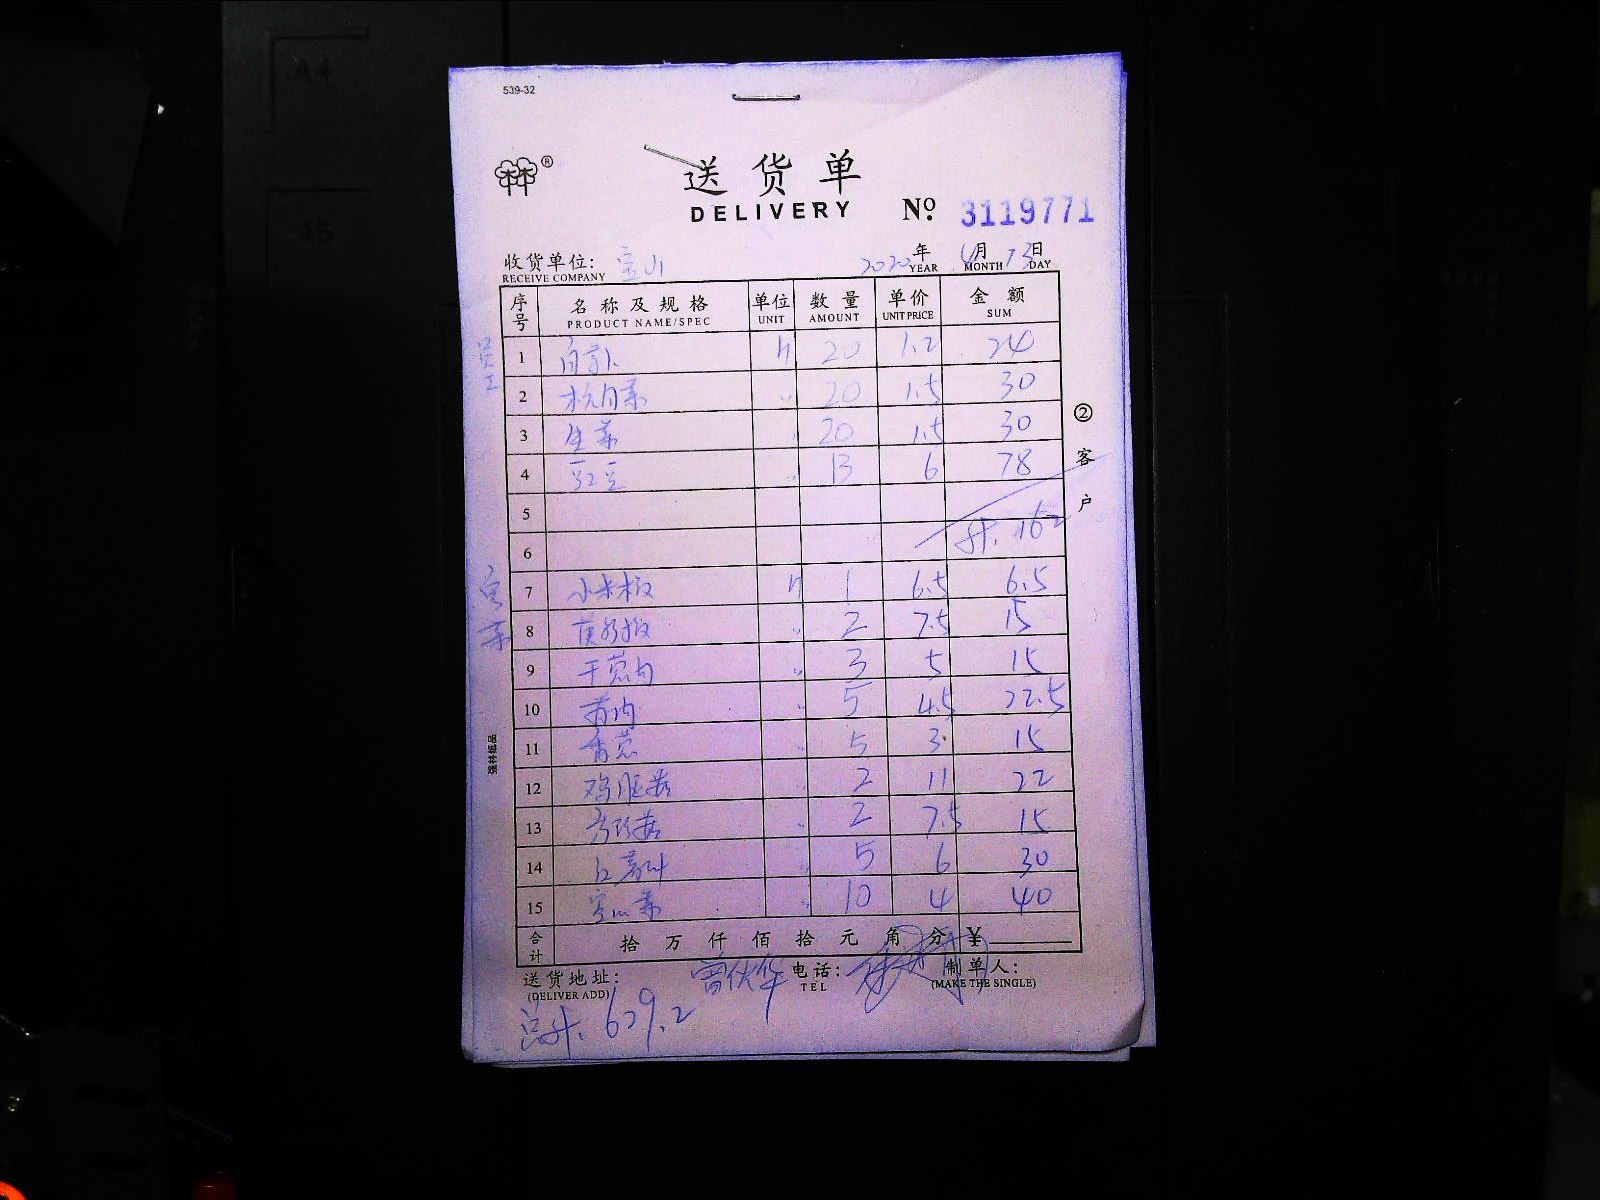 539-32
送货单
DELIVERY
№ 3119771
收货单位: 宝山 2020年 4月 13日
RECEIVE COMPANY YEAR MONTH DAY
序号 名称及规格 单位 数量 单价 金额
PRODUCT NAME/SPEC UNIT AMOUNT UNIT PRICE SUM
员工
1 20 1.2 24
2 杭白菜 20 1.5 30
3 生菜 20 1.5 30
4 豇豆 13 6 78
5
6 计. 162
客菜
7 小米椒 1 6.5 6.5
8 2 7.5 15
9 干葱 3 5 15
10 5 4.5 22.5
11 香葱 5 3 15
12 鸡腿菇 2 11 22
13 2 7.5 15
14 红 5 6 30
15 空心菜 10 4 40
合计 拾 万 仟 佰 拾 元 角 分 ¥
送货地址: 电话: 制单人:
(DELIVER ADD) TEL (MAKE THE SINGLE)
总计. 629.2
② 客户
强林纸品